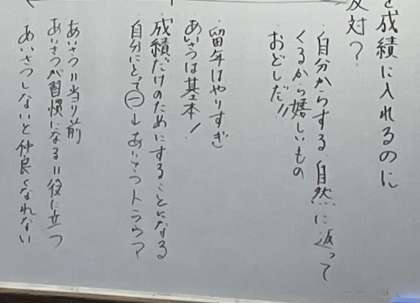 を成績に入れるのに
反対？
・自分からする 自然に返って
くるから嬉しいもの
おどしだ!!
・留年はやりすぎ
あいさつは基本！
・成績だけのためにすることになる
・自分にとって㊀→あいさつトラウマ
・あいさつ＝当り前
あいさつが習慣になる＝役に立つ
・あいさつしないと仲良くなれない